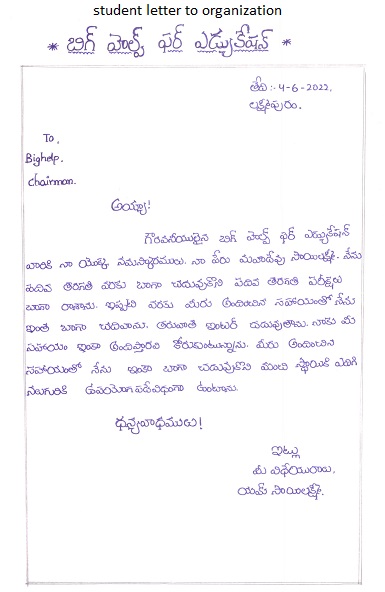 student letter to organization
* బిగ్ హెల్ప్ ఫర్ ఎడ్యుకేషన్ *
తేది:- 4-6-2022,
లక్ష్మీపురం.
To,
Bighelp.
Chairman.
అయ్యా!
గౌరవనీయులైన బిగ్ హెల్ప్ ఫర్ ఎడ్యుకేషన్
వారికి నా యొక్క నమస్కారములు. నా పేరు మహాదేవు సాయిలక్ష్మి. నేను
పదివ తరగతి వరకు బాగా చదువుకొని పదివ తరగతి పరీక్షలు
బాగా రాశాను. ఇప్పటి వరకు మీరు అందించిన సహాయంతో నేను
ఇంత బాగా చదివాను. తరువాత ఇంటర్ చదువుతాను. నాకు మీ
సహాయం ఇంకా అందిస్తారని కోరుకుంటున్నాను. మీరు అందించిన
సహాయంతో నేను ఇంకా బాగా చదువుకొని మంచి స్థాయికి ఎదిగి
నలుగురికి ఉపయోగపడేవిధంగా ఉంటాను.
ధన్యవాధములు!
ఇట్లు
మీ విధేయురాలు,
యమ్ సాయిలక్ష్మి.